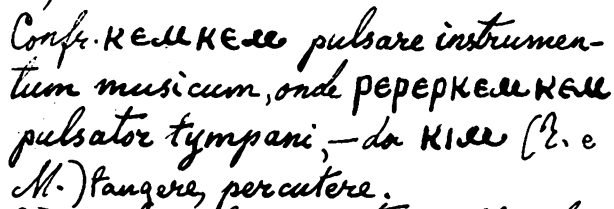 Confr. ⲕⲉⲙⲕⲉⲙ pulsare instrumen-
tum musicum, onde ⲣⲉϥⲉⲣⲕⲉⲙⲕⲉⲙ
pulsator tympani, — da ⲕⲓⲙ (T. e
M.) tangere, percutere.